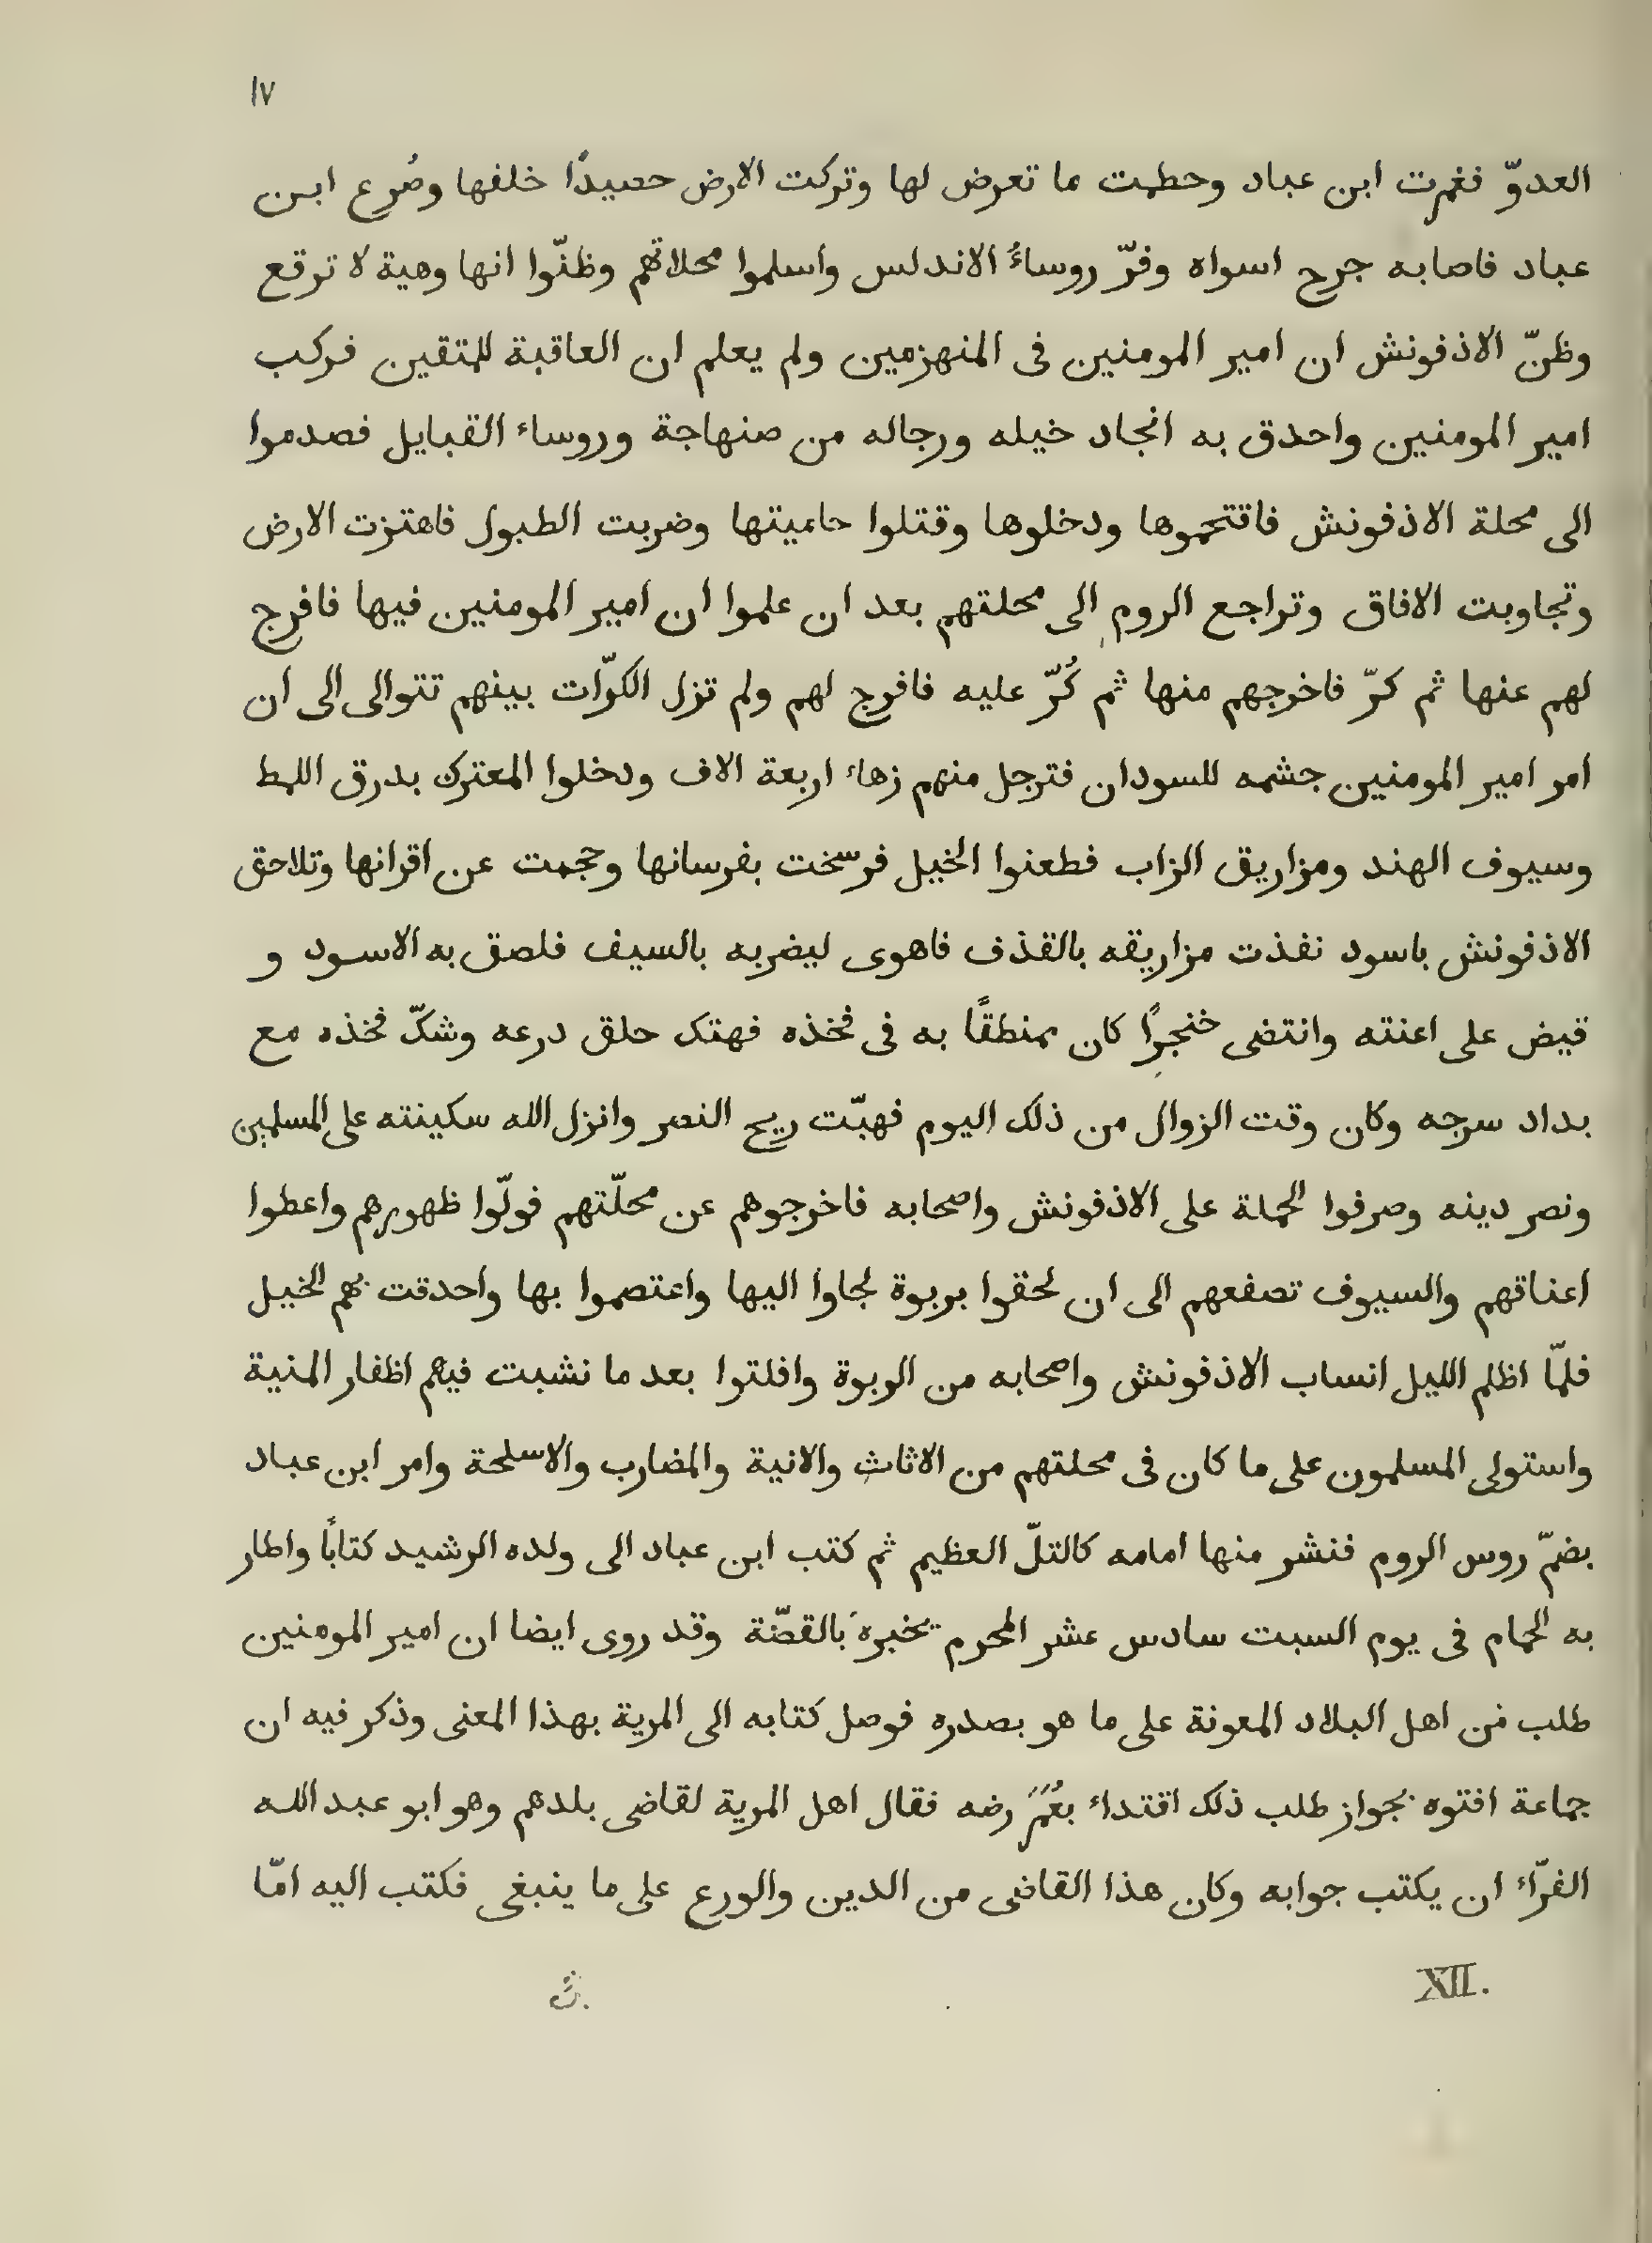 ١٧
العدوّ فغمرت ابن عباد وحطمت ما تعرض لها وتركت الارض حصيدًا خلفها وصُرع ابن
عباد فاصابه جرح اسواه وفرّ روساءُ الاندلس واسلموا محلاتهم وظنّوا انها وهية لا ترقع
وظنّ الاذفونش ان امير المومنين فى المنهزمين ولم يعلم ان العاقبة للمتقين فركب
امير المومنين واحدق به انجاد خيله ورجاله من صنهاجة وروساء القبايل فصدموا
الى محلة الاذفونش فاقتحموها ودخلوها وقتلوا حاميتها وضربت الطبول فاهتزت الارض
وتجاوبت الافاق وتراجع الروم الى محلتهم بعد ان علموا ان امير المومنين فيها فافرج
لهم عنها ثم كرّ فاخرجهم منها ثم كُرّ عليه فافرج لهم ولم تزل الكرّات بينهم تتوالى الى ان
امر امير المومنين جشمه للسودان فترجل منهم زهاء اربعة الاف ودخلوا المعترك بدرق اللمط
وسيوف الهند ومزاريق الزاب فطعنوا الخيل فرسخت بفرسانها وحجمت عن اقرانها وتلاحق
الاذفونش باسود نفذت مزاريقه بالقذف فاهوى ليضربه بالسيف فلصق به الاسود و
قيض على اعنته وانتضى خنجرًا كان بمنطقًا به فى فخذه فهتك حلق درعه وشكّ فخذه مع
بداد سرجه وكان وقت الزوال من ذلك اليوم فهبّت ريح النصر وانزل الله سكينته على المسلمين
ونصر دينه وصرفوا الحملة على الاذفونش واصحابه فاخرجوهم عن محلّتهم فولّوا ظهورهم واعطوا
اعناقهم والسيوف تصفعهم الى ان لحقوا بربوة لجاوا اليها واعتصموا بها واحدقت بهم الخيل
فلمّا اظلم الليل انساب الاذفونش واصحابه من الربوة وافلتوا بعد ما نشبت فيهم اظفار المنية
واستولى المسلمون على ما كان فى محلتهم من الاثاث والانية والمضارب والاسلحة وامر ابن عباد
بضمّ روس الروم فنشر منها امامه كالتلّ العظيم ثم كتب ابن عباد الى ولده الرشيد كتابًا واطار
به الحمام فى يوم السبت سادس عشر المحرم يخبره بالقصّة وقد روى ايضا ان امير المومنين
طلب من اهل البلاد المعونة على ما هو بصدره فوصل كتابه الى المرية بهذا المعنى وذكر فيه ان
جماعة افتوه بجواز طلب ذلك اقتداء بعُمَرَ رضه فقال اهل المرية لقاضى بلدهم وهو ابو عبد الله
الفرّاء ان يكتب جوابه وكان هذا القاضى من الدين والورع على ما ينبغى فكتب اليه امّا
XII.